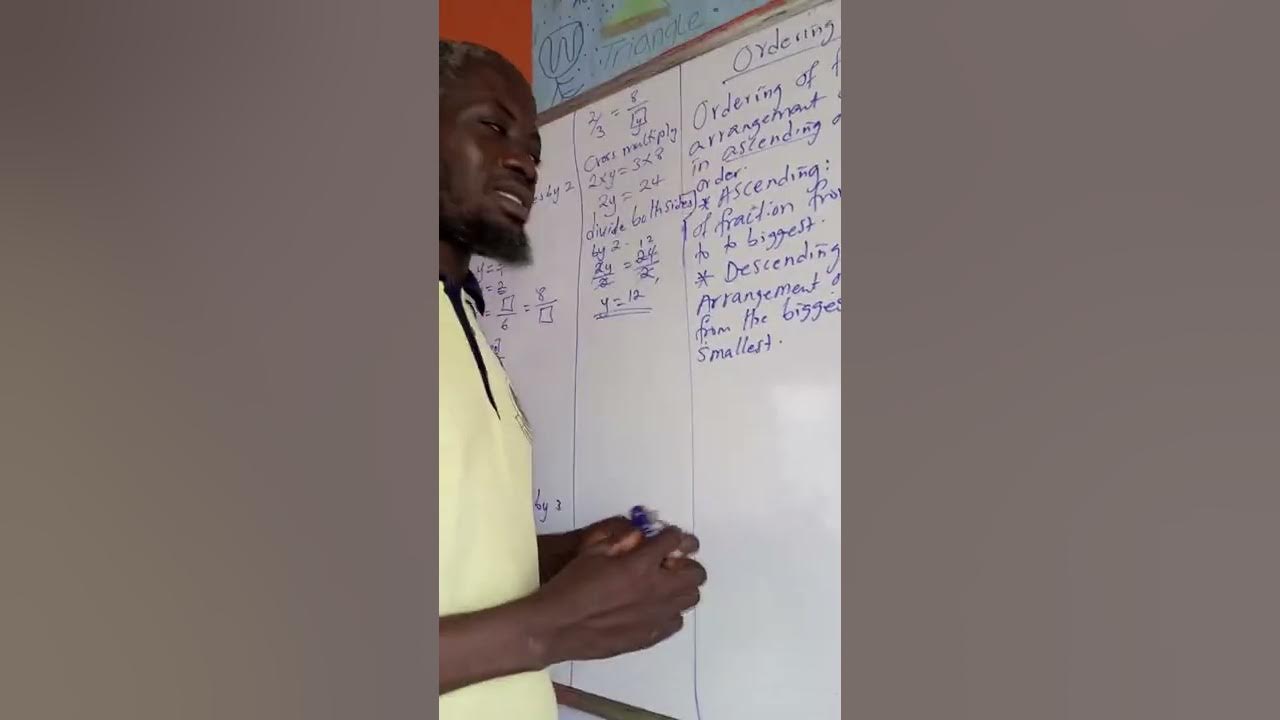 Triangle
es by 2
y =
=
= □/6 = 8/□
by 3
2/3 = 8/y
Cross multiply
2xy = 3x8
2y = 24
divide both sides
by 2. 12
2y/2 = 24/2
y = 12
Ordering
Ordering of f
arrangement
in ascending
order.
* Ascending:
of fraction fro
to to biggest.
* Descending
Arrangement
from the bigges
smallest.